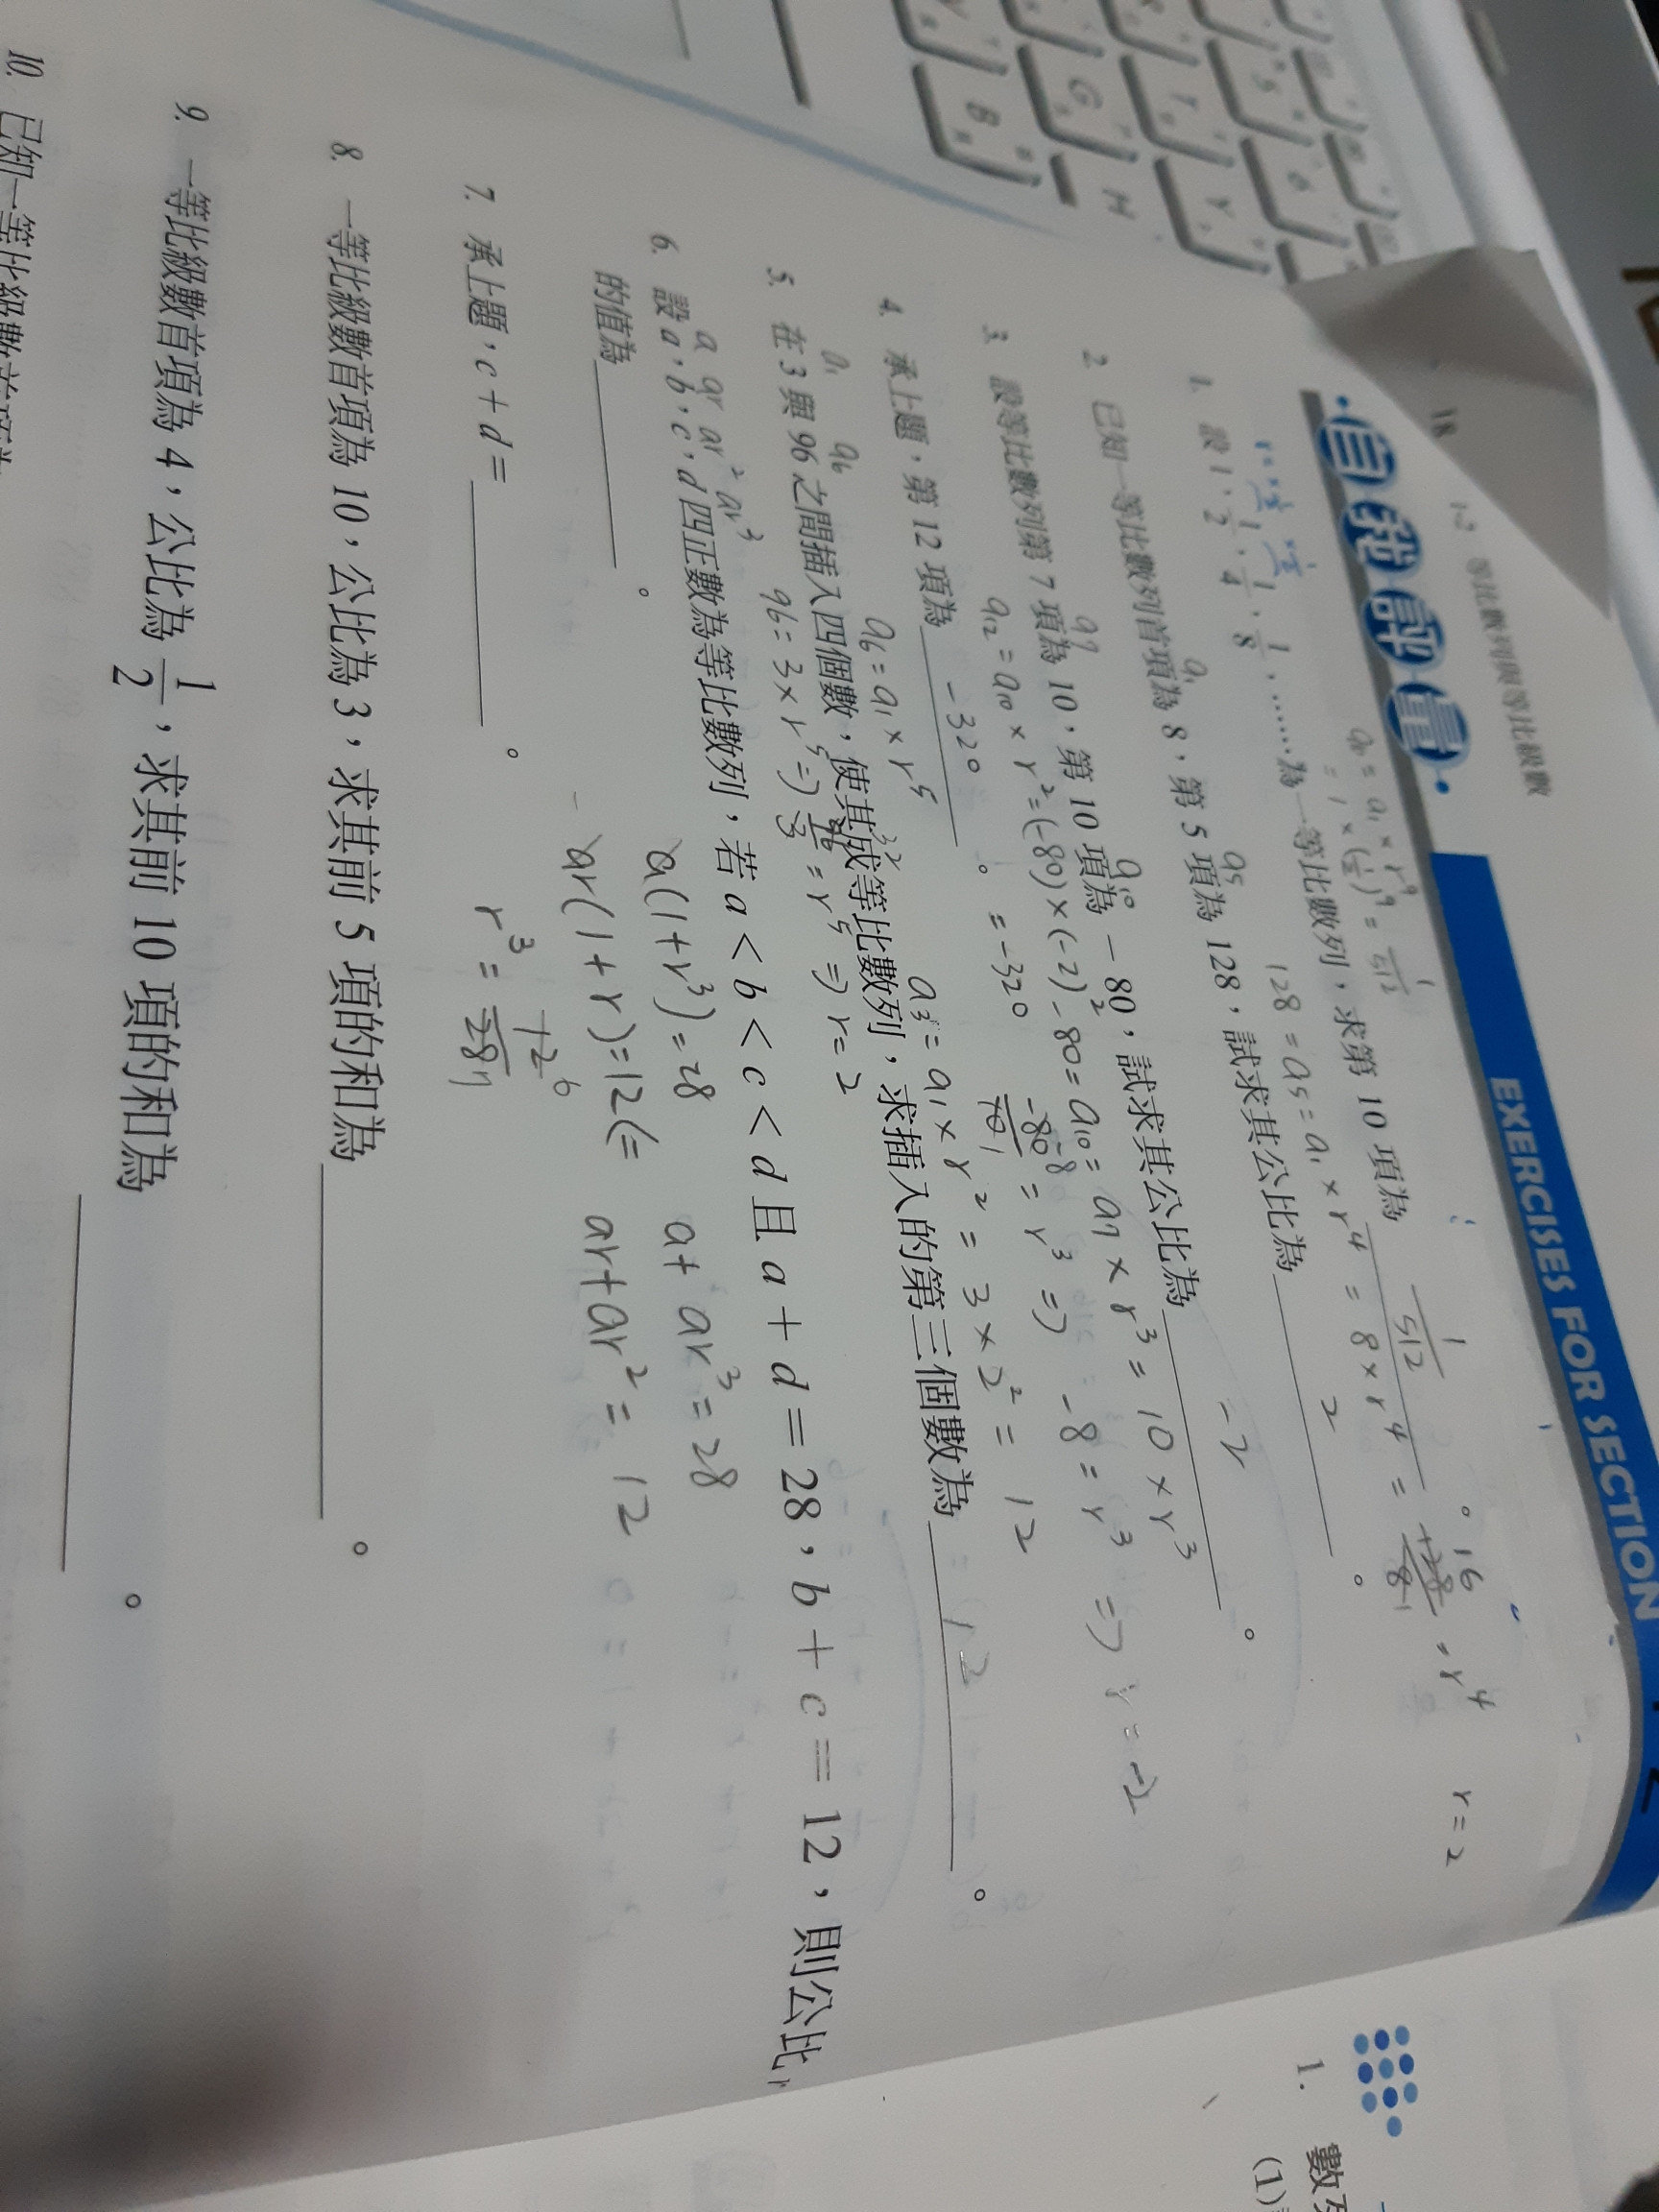 18
1-2 等比數列與等比級數
自我評量
EXERCISES FOR SECTION
1. 設 1, 1/2, 1/4, 1/8, ……為一等比數列，求第 10 項為 1/512 。
= 1 × (1/2)^9 = 1/512
2. 已知一等比數列首項為 8，第 5 項為 128，試求其公比為 2 。
128 = a5 = a1 × r^4 = 8 × r^4
r = 2
3. 設等比數列第 7 項為 10，第 10 項為 －80，試求其公比為 -2 。
-80 = a10 = a7 × r^3 = 10 × r^3
= r^3 ⇒ -8 = r^3 ⇒ r = -2
4. 承上題，第 12 項為 -320 。
a12 = a10 × r^2 = (-80) × (-2)^2
= -320
5. 在 3 與 96 之間插入四個數，使其成等比數列，求插入的第三個數為 12 。
a1 a6
a6 = a1 × r^5
96 = 3 × r^5 ⇒ = r^5 ⇒ r = 2
a3 = a1 × r^2 = 3 × 2^2 = 12
6. 設 a，b，c，d 四正數為等比數列，若 a < b < c < d 且 a + d = 28，b + c = 12，則公比
的值為 。
a ar ar^2 ar^3
a(1+r^3) = 28
ar(1+r) = 12
a + ar^3 = 28
ar + ar^2 = 12
7. 承上題，c + d = 。
8. 一等比級數首項為 10，公比為 3，求其前 5 項的和為 。
9. 一等比級數首項為 4，公比為 1/2，求其前 10 項的和為 。
10. 已知一等比級數首項
1. 數
(1)
B
G
H